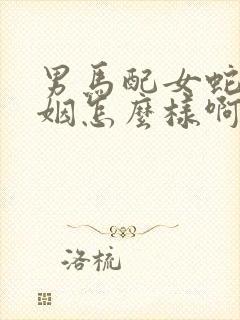 男馬配女蛇
姻怎麼樣啊
洛梳